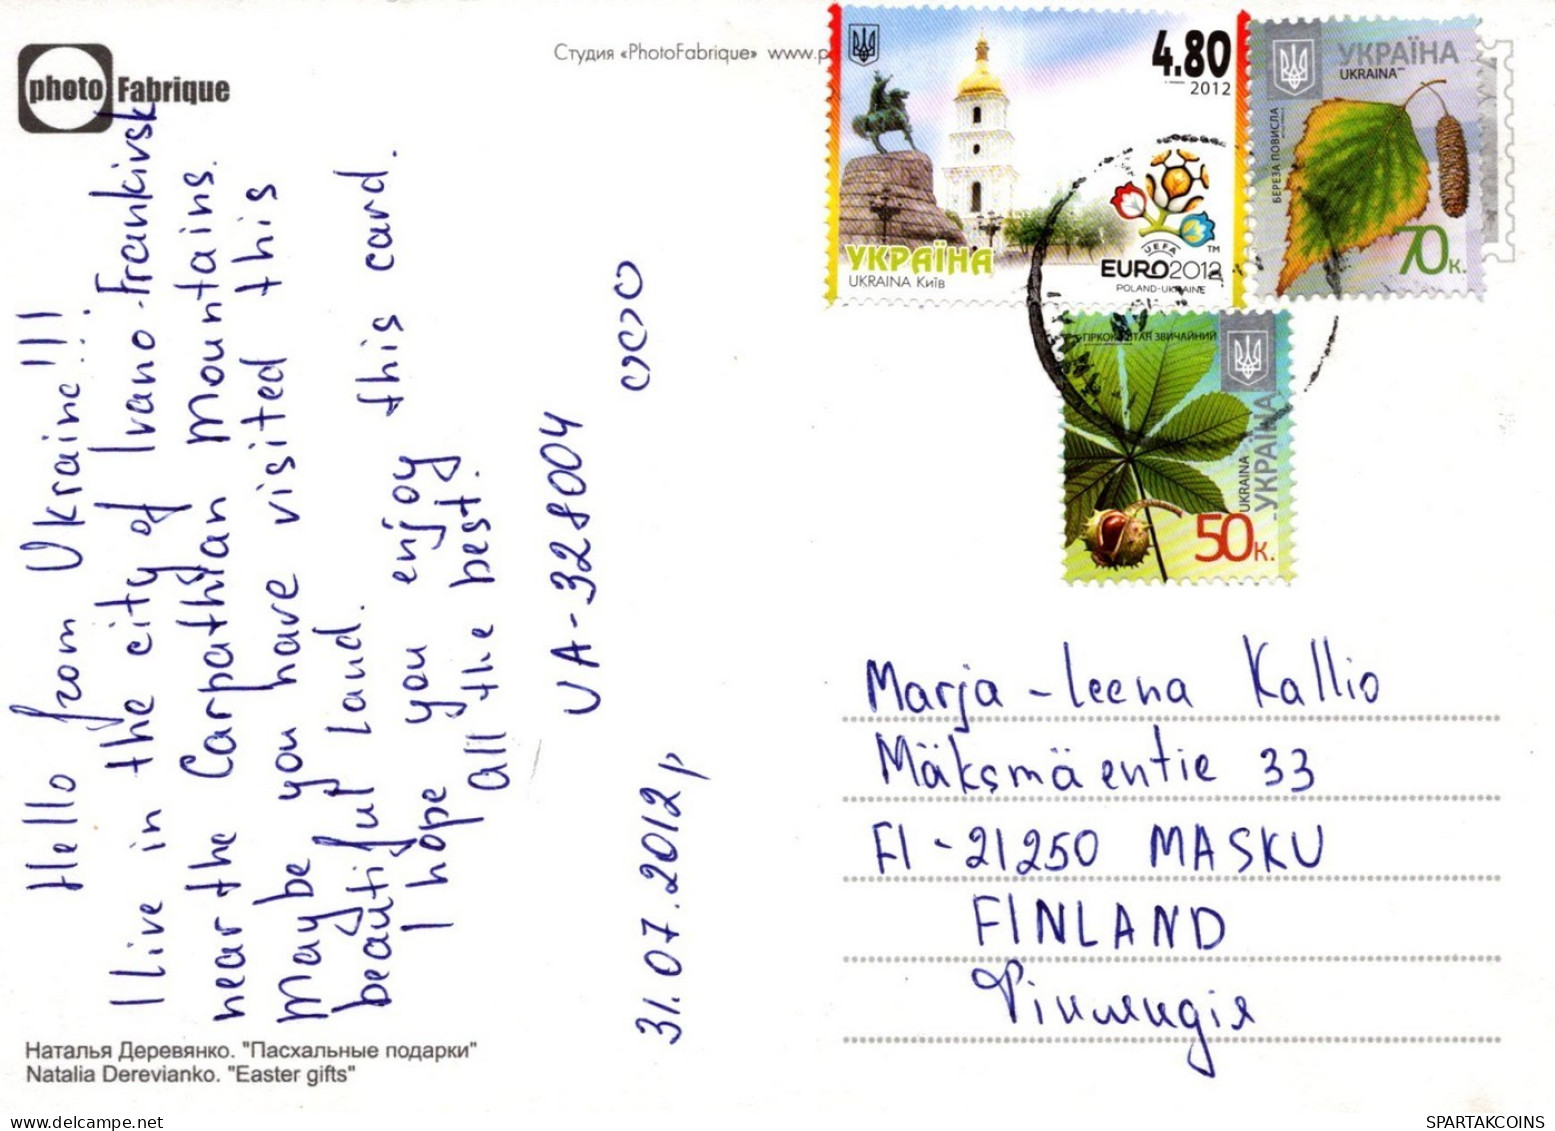 photo Fabrique
Студия «PhotoFabrique» www.p
4.80
2012
УКРАЇНА
UKRAINA Київ
UEFA
EURO2012
TM
POLAND-UKRAINE
УКРАЇНА
UKRAINA
БЕРЕЗА ПОВИСЛА
70к.
ГІРКОКАШТАН ЗВИЧАЙНИЙ
UKRAINA
УКРАЇНА
50к.
Hello from Ukraine!!!
I live in the city of Ivano-Frankivsk
near the Carpathian Mountains.
Maybe you have visited this
beautiful land.
I hope you enjoy this card.
all the best.
UA-328004
31.07.2012р
Marja-leena Kallio
Mäksmäentie 33
FI-21250 MASKU
FINLAND
Фінляндія
Наталья Деревянко. "Пасхальные подарки"
Natalia Derevianko. "Easter gifts"
SPARTAKCOINS